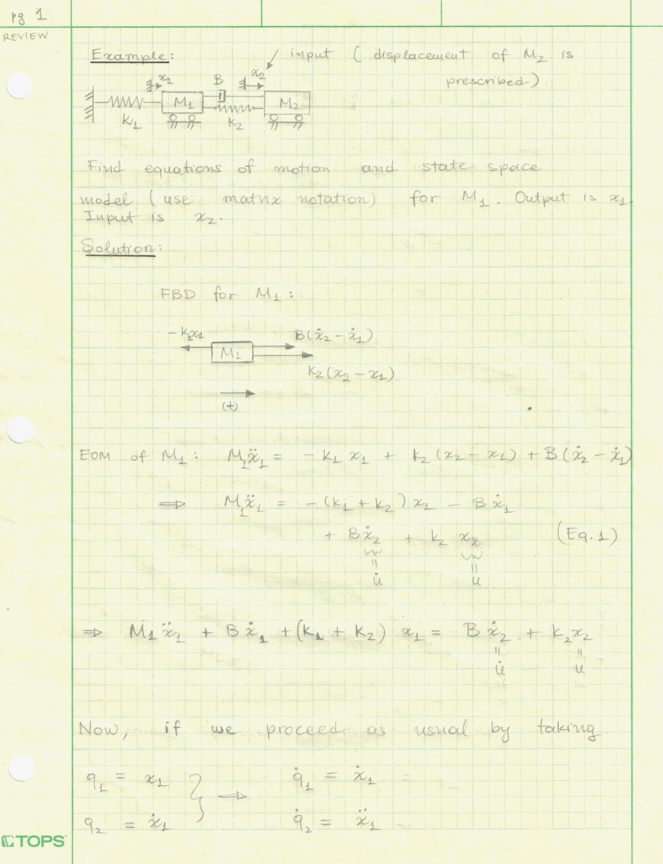 pg 1
REVIEW
Example: input ( displacement of M2 is
prescribed)
x1 B x2
M1 M2
K1 K2
Find equations of motion and state space
model (use matrix notation) for M1. Output is x1
Input is x2.
Solution:
FBD for M1:
-K1x1 B(ẋ2 - ẋ1)
M1
K2(x2 - x1)
(+)
EOM of M1: M1ẍ1 = - K1 x1 + K2 (x2 - x1) + B(ẋ2 - ẋ1)
⇒ M1ẍ1 = -(K1 + K2) x1 - B ẋ1
+ Bẋ2 + k2 x2 (Eq.1)
= =
u̇ u
⇒ M1 ẍ1 + B ẋ1 + (K1 + K2) x1 = B ẋ2 + K2x2
= =
u̇ u
Now, if we proceed as usual by taking
q1 = x1 } → q̇1 = ẋ1 =
q2 = ẋ1 q̇2 = ẍ1
TOPS